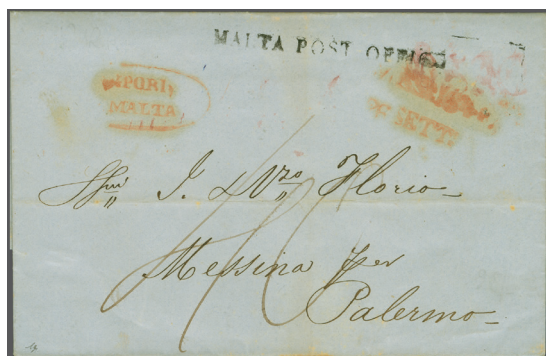 MALTA POST OFFICE
VAPORI
MALTA
SETT.
I. & V.zo Florio
Messina per
Palermo